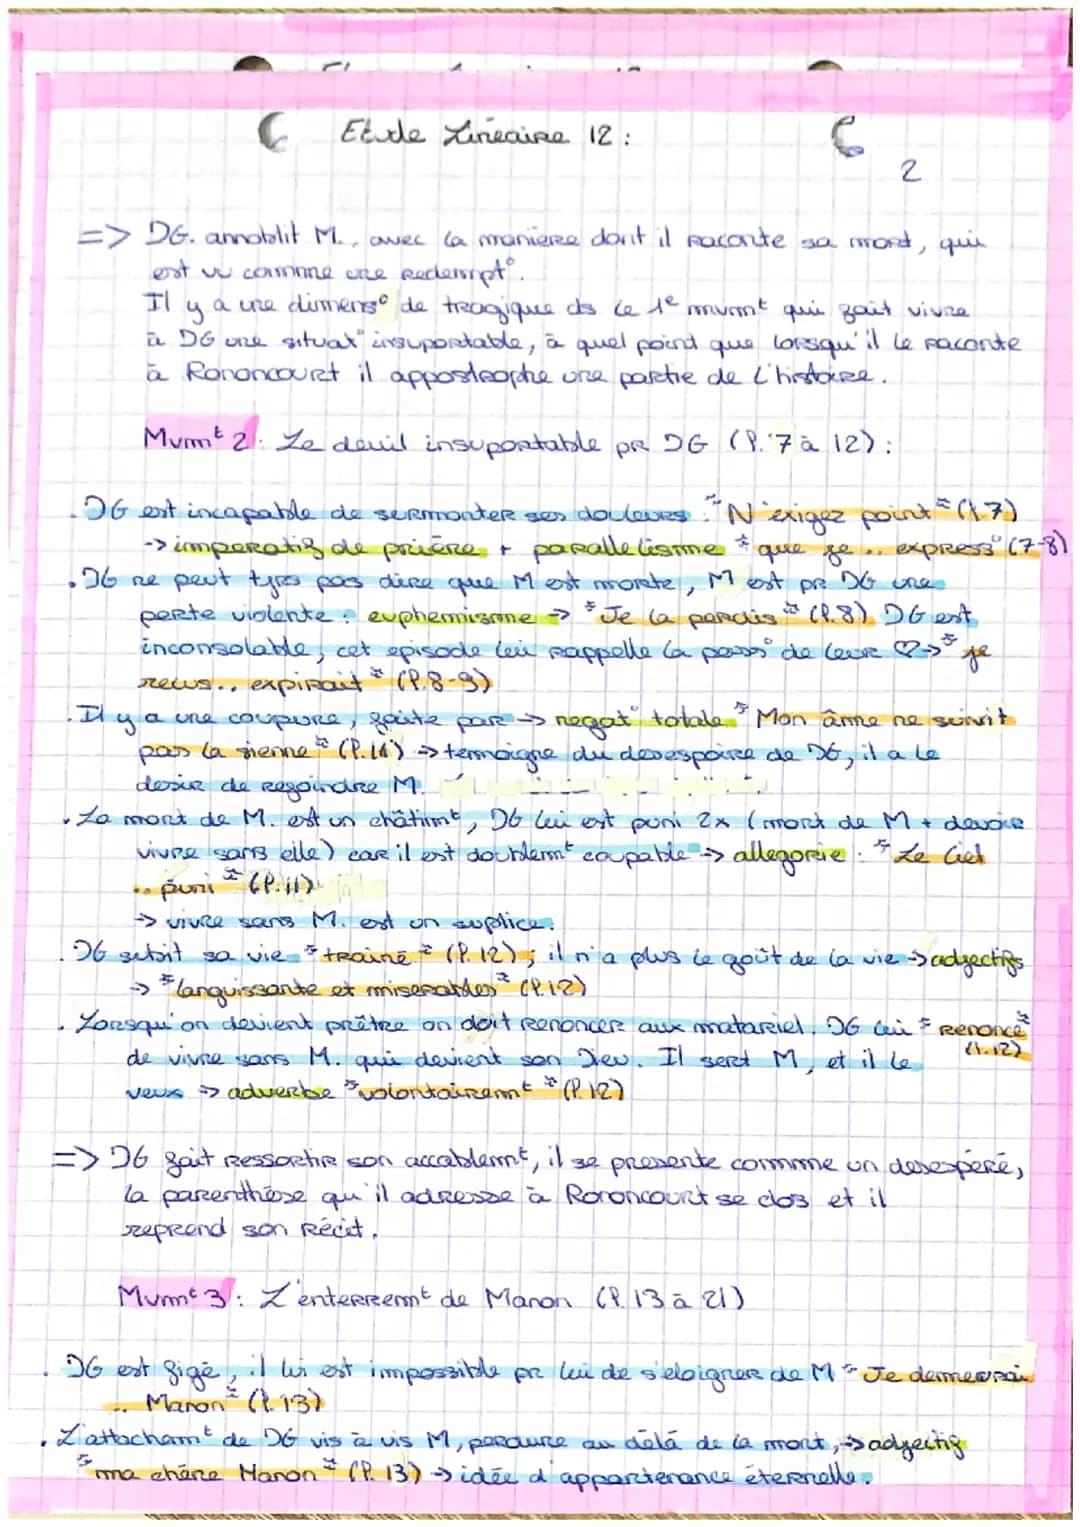 Etude Lineaire 12 :
2
=> DG. annoblit M., avec la maniere dont il raconte sa mort, qui
est vu comme une redempt°.
Il y a une dimens° de tragique ds le 1e mvmt qui fait vivre
à DG une situat° insuportable, à quel point que lorsqu'il le raconte
à Rononcourt il appostrophe une partie de l'histoire.
Mvmt 2 : Le deuil insuportable pr DG (l. 7 à 12) :
. DG est incapable de surmonter ses douleurs : "N'exigez point" (l.7)
-> imperatif de prière + parallelisme "que je .. express" (7-8)
. DG ne peut tjrs pas dire que M est morte, M est pr DG une
perte violente : euphemisme -> "Je la perdis" (l.8) DG est
inconsolable, cet episode lui rappelle la pass° de leur ♡ -> "je
recus .. expirait" (l.8-9)
. Il y a une coupure, faite par -> negat° totale "Mon âme ne suivit
pas la sienne" (l.11) -> temoigne du desespoire de DG, il a le
desir de rejoindre M.
. La mort de M. est un châtimt, DG lui est puni 2x (mort de M + devoir
vivre sans elle) car il est doublemt coupable -> allegorie : "Le Ciel
.. puni" (l.11)
-> vivre sans M. est un suplice.
. DG subit sa vie "trainé" (l.12) ; il n'a plus le goût de la vie -> adjectifs
-> "languissante et miserables" (l.12)
. Lorsqu'on devient prêtre on doit renoncer aux matariel. DG lui "renonce"
(l.12)
de vivre sans M. qui devient son Dieu. Il sert M, et il le
veux -> adverbe "volontairemt" (l.12)
=> DG fait ressortir son accablemt, il se presente comme un desespéré,
la parenthèse qu'il adresse à Rononcourt se clos et il
reprend son récit.
Mvmt 3 : L'enterremt de Manon (l. 13 à 21)
. DG est figé, il lui est impossible pr lui de s'eloigner de M "Je demeurai
.. Manon" (l.13)
. L'attachamt de DG vis à vis M, perdure au délà de la mort, -> adjectif
"ma chère Manon" (l.13) -> idée d'appartenance éternelle.